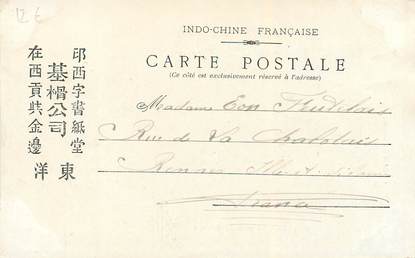 12 €
INDO-CHINE FRANÇAISE
CARTE POSTALE
(Ce côté est exclusivement réservé à l'adresse)
印西字書紙堂
基楷公司
在西貢共金邊
東洋
Madame
Rue de La Chalotais
Rennes Ille-et-Vilaine
France